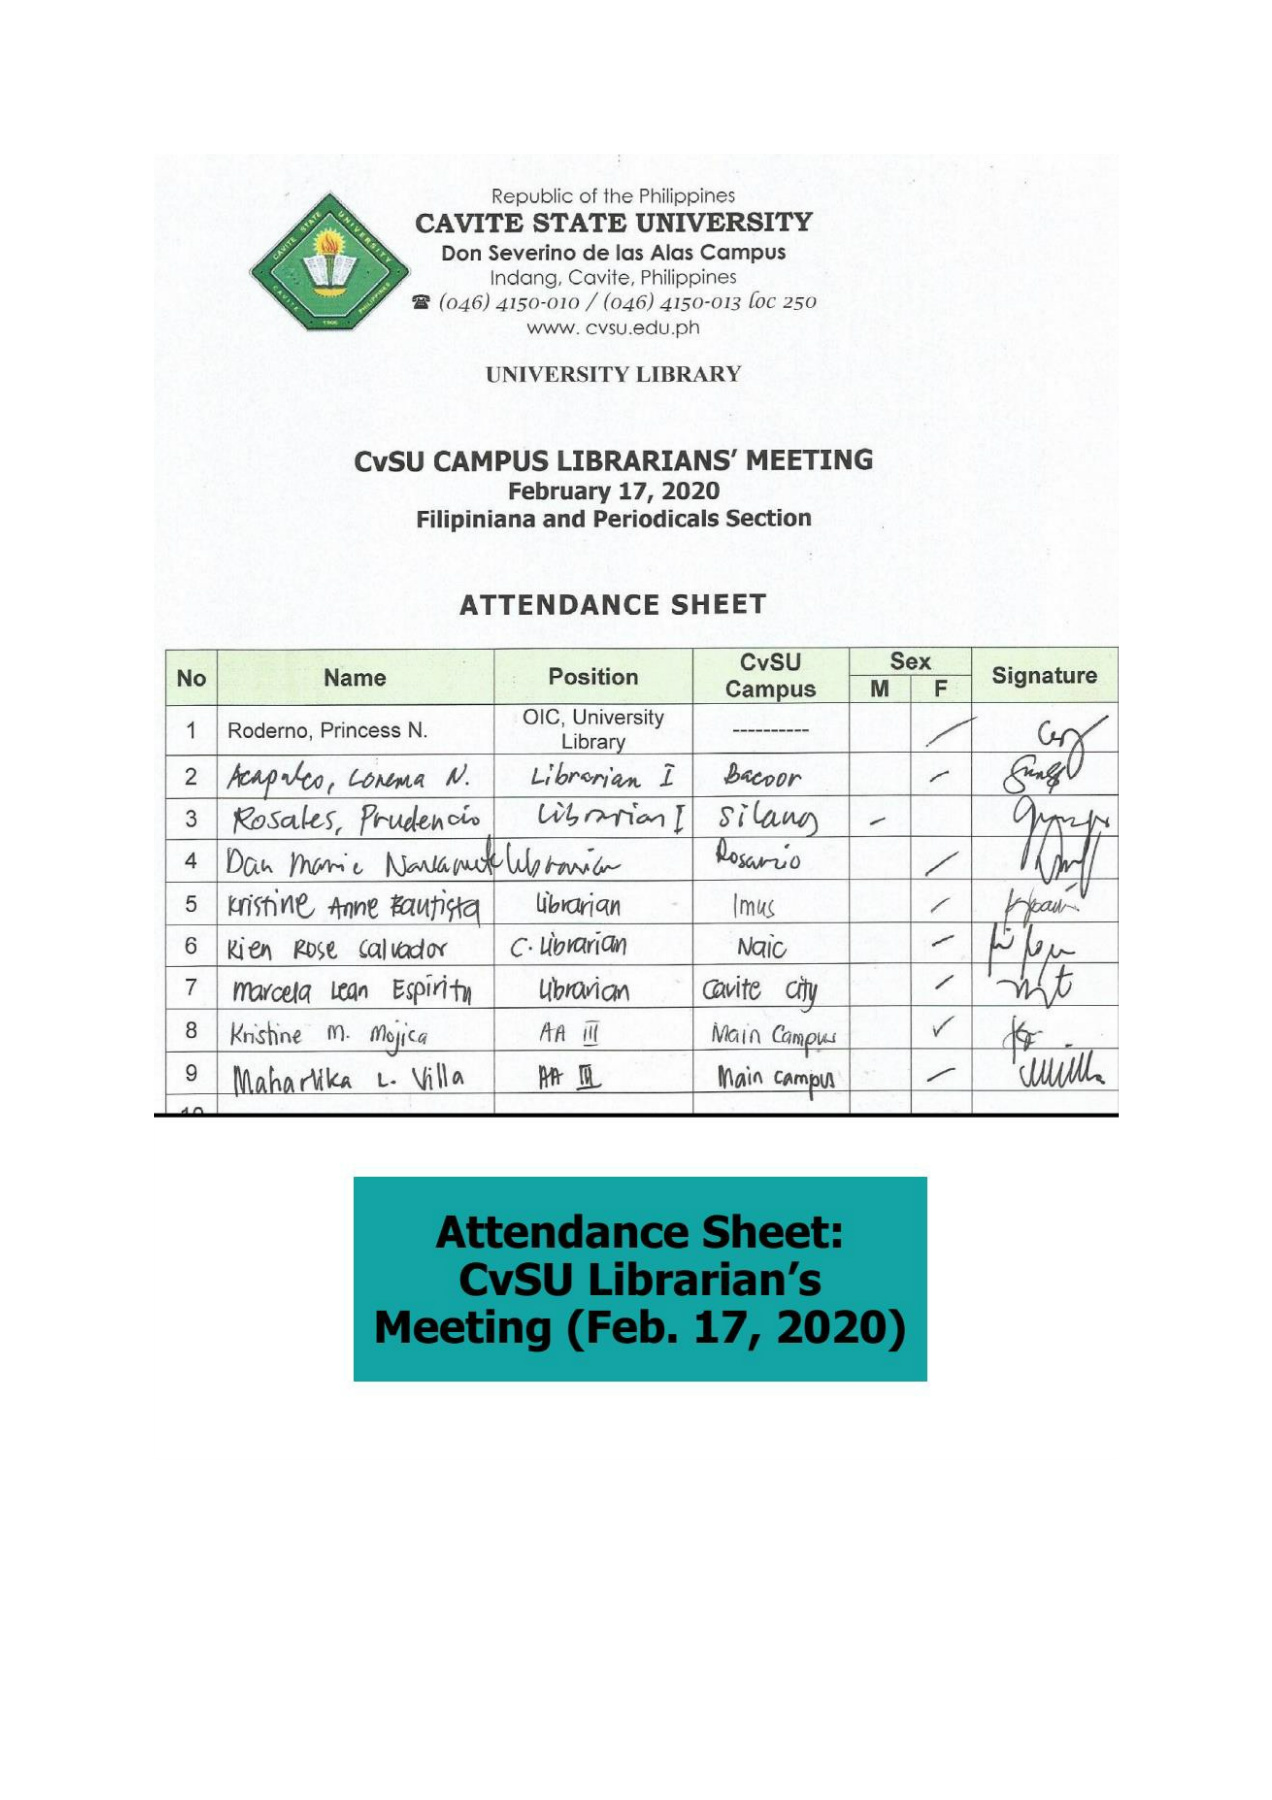 Republic of the Philippines
CAVITE STATE UNIVERSITY
Don Severino de las Alas Campus
Indang, Cavite, Philippines
☎ (046) 4150-010 / (046) 4150-013 loc 250
www. cvsu.edu.ph
CAVITE STATE UNIVERSITY
CAVITE PHILIPPINES
1906
UNIVERSITY LIBRARY
CvSU CAMPUS LIBRARIANS’ MEETING
February 17, 2020
Filipiniana and Periodicals Section
ATTENDANCE SHEET
No Name Position CvSU Campus Sex M F Signature
1 Roderno, Princess N. OIC, University Library ----------
2 Acapulco, Lorema N. Librarian I Bacoor
3 Rosales, Prudencio Librarian I Silang
4 Dan Marie Librarian Rosario
5 Kristine Anne Bautista Librarian Imus
6 Rien Rose Salvador C. Librarian Naic
7 Marcela Lean Espiritu Librarian Cavite City
8 Kristine M. Mojica AA III Main Campus
9 Maharlika L. Villa AA III Main campus
10
Attendance Sheet:
CvSU Librarian’s
Meeting (Feb. 17, 2020)